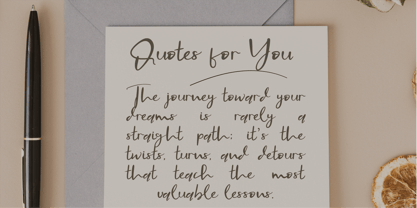 Quotes for You
The journey toward your
dreams is rarely a
straight path; it's the
twists, turns, and detours
that teach the most
valuable lessons.